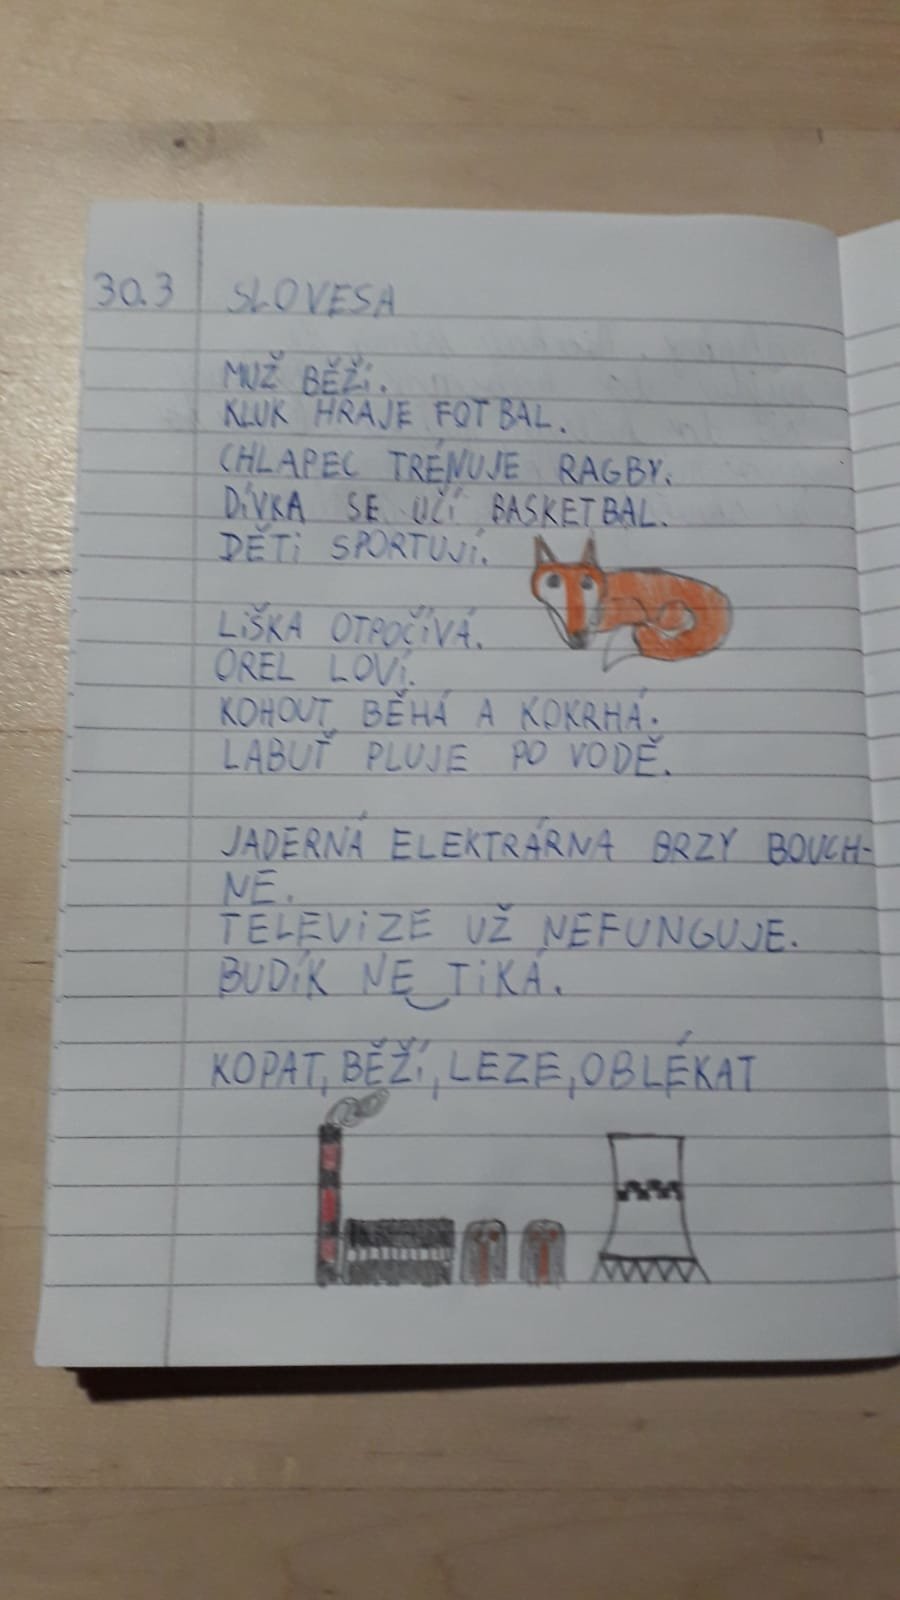 30.3 SLOVESA
MUŽ BĚŽÍ.
KLUK HRAJE FOTBAL.
CHLAPEC TRÉNUJE RAGBY.
DÍVKA SE UČÍ BASKETBAL.
DĚTI SPORTUJÍ.
LIŠKA OTPOČÍVÁ.
OREL LOVÍ.
KOHOUT BĚHÁ A KOKRHÁ.
LABUŤ PLUJE PO VODĚ.
JADERNÁ ELEKTRÁRNA BRZY BOUCH-
NE.
TELEVIZE UŽ NEFUNGUJE.
BUDÍK NE‿TIKÁ.
KOPAT, BĚŽÍ, LEZE, OBLÉKAT